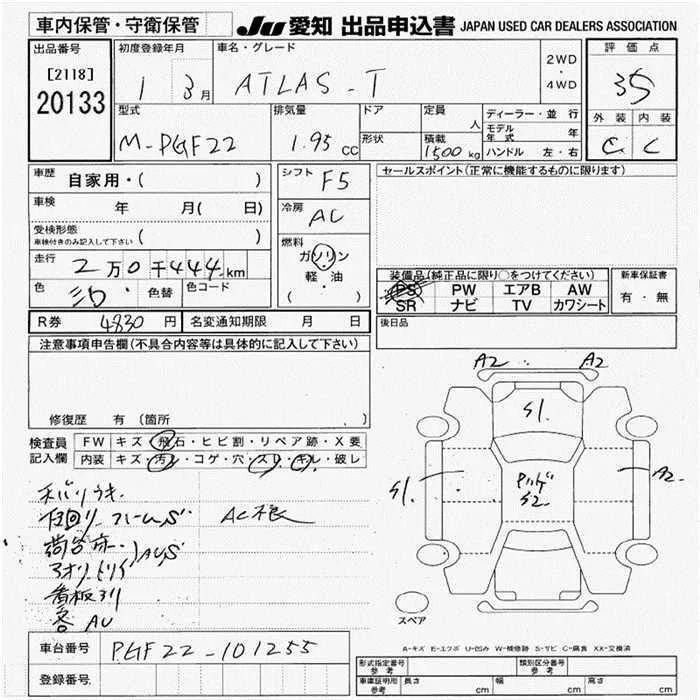 車内保管・守衛保管
JU 愛知 出品申込書 JAPAN USED CAR DEALERS ASSOCIATION
出品番号
[2118]
20133
初度登録年月
1 3 月
車名・グレード
ATLAS-T
2WD
・
4WD
評価点
35
外装 内装
C C
型式
M-PGF22
排気量
1.95 cc
ドア
形状
定員
人
積載
1500 kg
ディーラー・並行
モデル年式 年
ハンドル 左・右
車歴
自家用・( )
車検 年 月( 日)
受検形態
車検付きのみ記入して下さい ( )
走行
2万0千444km
色
色替
色コード
シフト F5
冷房 AC
燃料
ガソリン
・
軽・油
( )
セールスポイント(正常に機能するものに限ります)
装備品(純正品に限り○をつけてください)
PS PW エアB AW
SR ナビ TV カワシート
新車保証書
有・無
R券 4830 円 名変通知期限 月 日
後日品
注意事項申告欄(不具合内容等は具体的に記入して下さい)
修復歴 有(箇所 )
検査員記入欄
FW キズ・飛石・ヒビ割・リペア跡・X要
内装 キズ・汚レ・コゲ・穴・スレ・キレ・破レ
A2 A2
S1.
S1.
S2.
A2.
下回り フレームS
AC不良
荷台床・
AUS
アオリ
看板
AU
スペア
A-キズ E-エクボ U-凹み W-補修跡 S-サビ C-腐食 XX-交換済
車台番号 PGF22-101255
登録番号
形式指定番号 参考
類別区分番号 参考
車庫証明用 参考 長さ cm 幅 cm 高さ cm